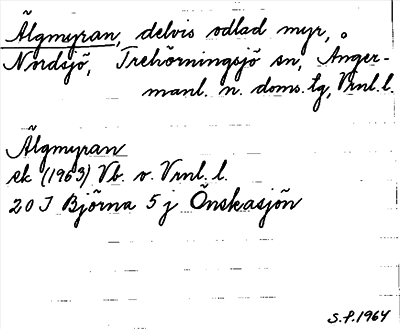 Älgmyran, delvis odlad myr, o
Nordsjö, Trehörningsjö sn, Ånger-
manl. n. doms.lg, Vrnl.l.
Älgmyran
ek (1963) Vb. o. Vrnl. l.
20 I Björna 5 j Önskasjön
S.F. 1964